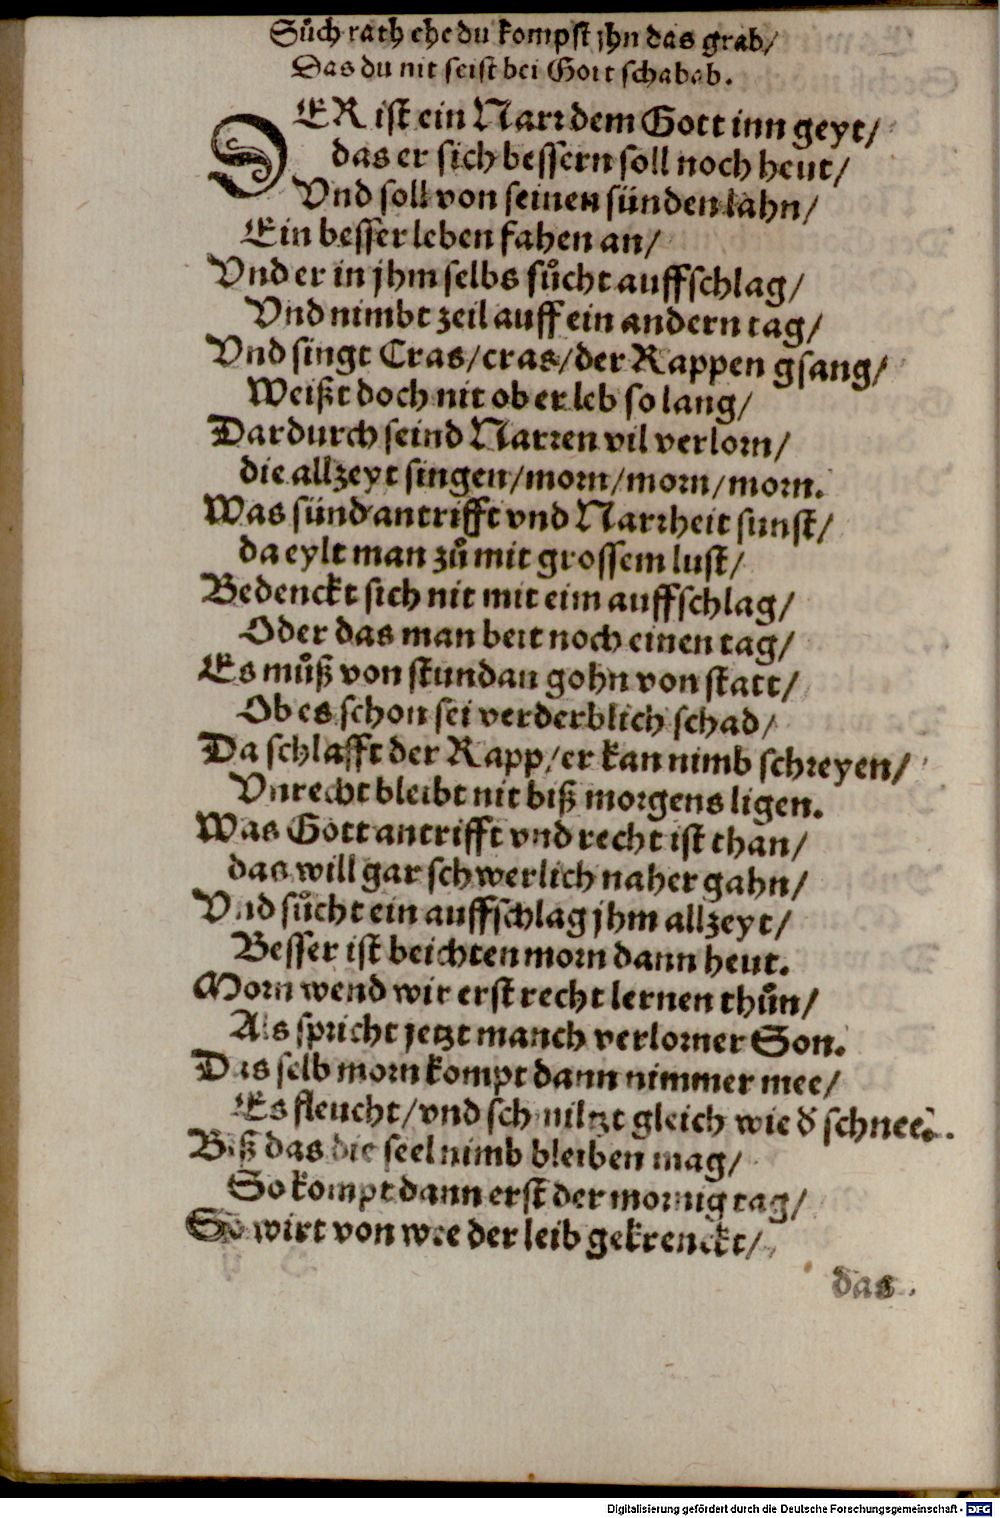 Sůch rath ehe du kompst jhn das grab/
Das du nit seist bei Gott schabab.
DER ist ein Narr dem Gott inn geyt/
das er sich bessern soll noch heut/
Vnd soll von seinen sünden lahn/
Ein besser leben fahen an/
Vnd er in jhm selbs sůcht auffschlag/
Vnd nimbt zeil auff ein andern tag/
Vnd singt Cras/cras/der Rappen gsang/
Weißt doch nit ob er leb so lang/
Dardurch seind Narren vil verlorn/
die allzeyt singen/morn/morn/morn.
Was sünd antrifft vnd Narrheit sunst/
da eylt man zů mit grossem lust/
Bedenckt sich nit mit eim auffschlag/
Oder das man beit noch einen tag/
Es můß von stundan gohn von statt/
Ob es schon sei verderblich schad/
Da schlafft der Rapp/er kan nimb schreyen/
Vnrecht bleibt nit biß morgens ligen.
Was Gott antrifft vnd recht ist than/
das will gar schwerlich naher gahn/
Vnd sůcht ein auffschlag jhm allzeyt/
Besser ist beichten morn dann heut.
Morn wend wir erst recht lernen thůn/
Als spricht jetzt manch verlorner Son.
Das selb morn kompt dann nimmer mee/
Es fleucht/vnd schmiltzt gleich wie d̕ schnee.
Biß das die seel nimb bleiben mag/
So kompt dann erst der mornig tag/
So wirt von wee der leib gekrenckt/
das
Digitalisierung gefördert durch die Deutsche Forschungsgemeinschaft - DFG